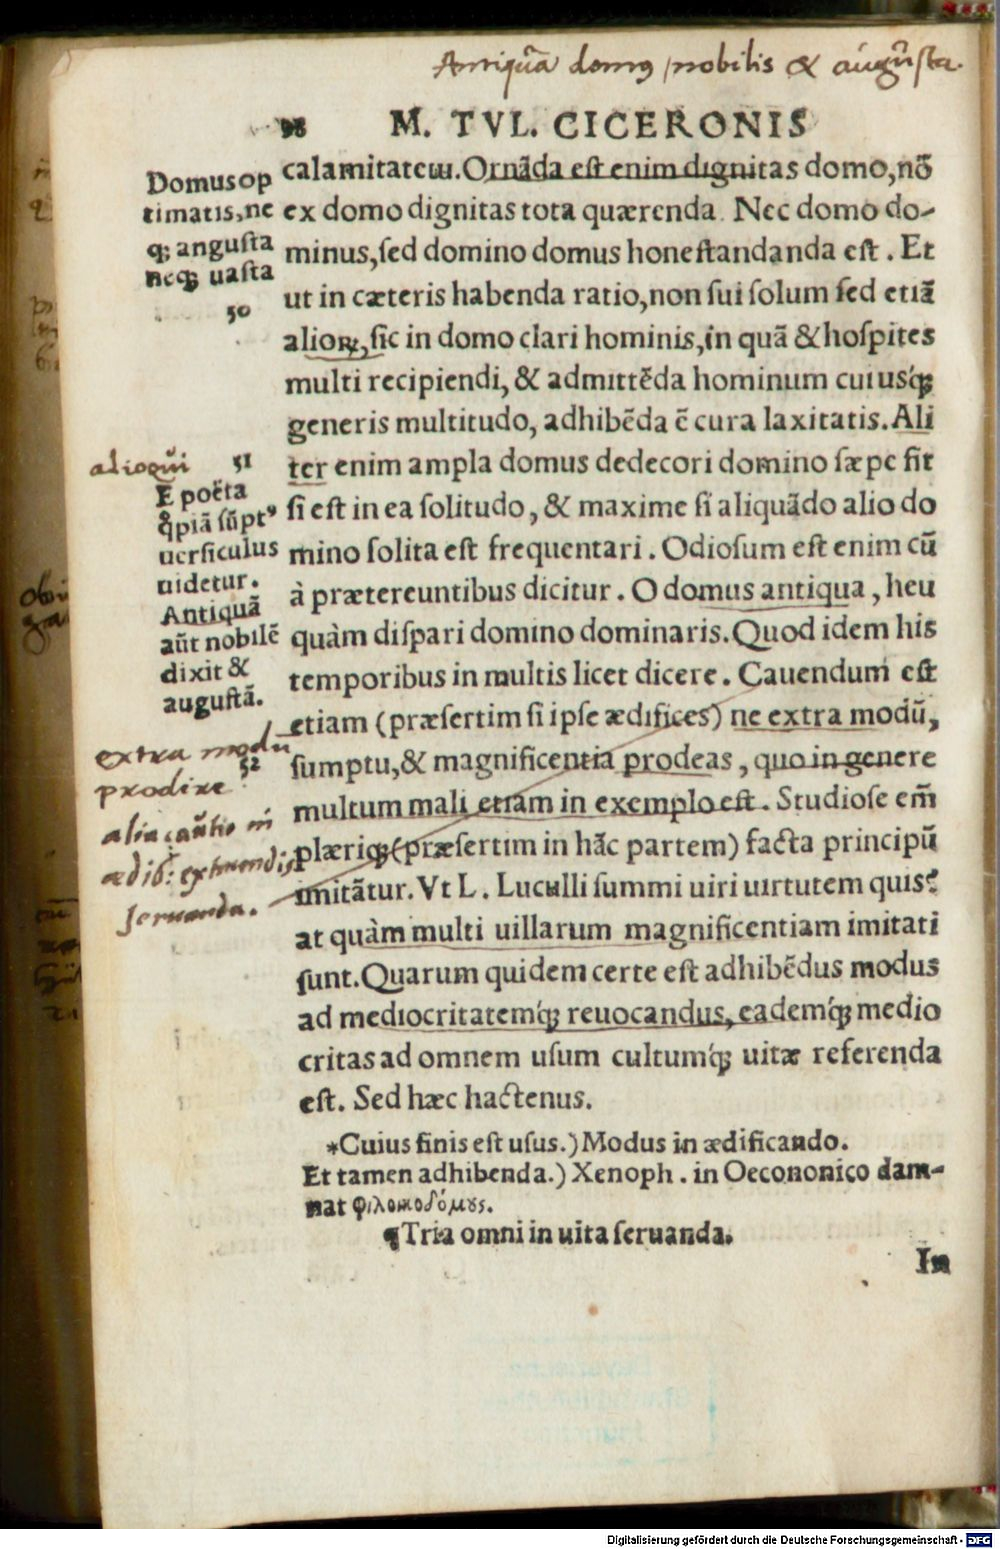 Antiqũa domus, nobilis & augusta.
98 M. TVL. CICERONIS
calamitatem. Ornãda est enim dignitas domo, nõ
ex domo dignitas tota quærenda. Nec domo do-
minus, sed domino domus honestandanda est. Et
ut in cæteris habenda ratio, non sui solum sed etiã
alioꝝ, sic in domo clari hominis, in quã & hospites
multi recipiendi, & admittẽda hominum cuiusq́ꝫ
generis multitudo, adhibẽda ẽ cura laxitatis. Ali
ter enim ampla domus dedecori domino sæpe fit
si est in ea solitudo, & maxime si aliquãdo alio do
mino solita est frequentari. Odiosum est enim cũ
à prætereuntibus dicitur. O domus antiqua, heu
quàm dispari domino dominaris. Quod idem his
temporibus in multis licet dicere. Cauendum est
etiam (præsertim si ipse ædifices) ne extra modũ,
sumptu, & magnificentia prodeas, quo in genere
multum mali etiam in exemplo est. Studiose em̃
plæriqꝫ (præsertim in hãc partem) facta principũ
imitãtur. Vt L. Luculli summi uiri uirtutem quis?
at quàm multi uillarum magnificentiam imitati
sunt. Quarum quidem certe est adhibẽdus modus
ad mediocritatemq́ꝫ reuocandus, eademq́ꝫ medio
critas ad omnem usum cultumq́ꝫ uitæ referenda
est. Sed hæc hactenus.
*Cuius finis est usus.) Modus in ædificando.
Et tamen adhibenda.) Xenoph. in Oecononico dam-
nat φιλοικοδόμους.
¶Tria omni in uita seruanda.
In
Domus op
timatis, ne
qꝫ angusta
neqꝫ uasta
50
alioqũi
51
E poëta
q̃piã sũptꝰ
uersiculus
uidetur.
Antiquã
aũt nobilẽ
dixit &
augustã.
extra modũ
52
prodire
alia cautio in
ædib: extruendis
seruanda.
Digitalisierung gefördert durch die Deutsche Forschungsgemeinschaft - DFG